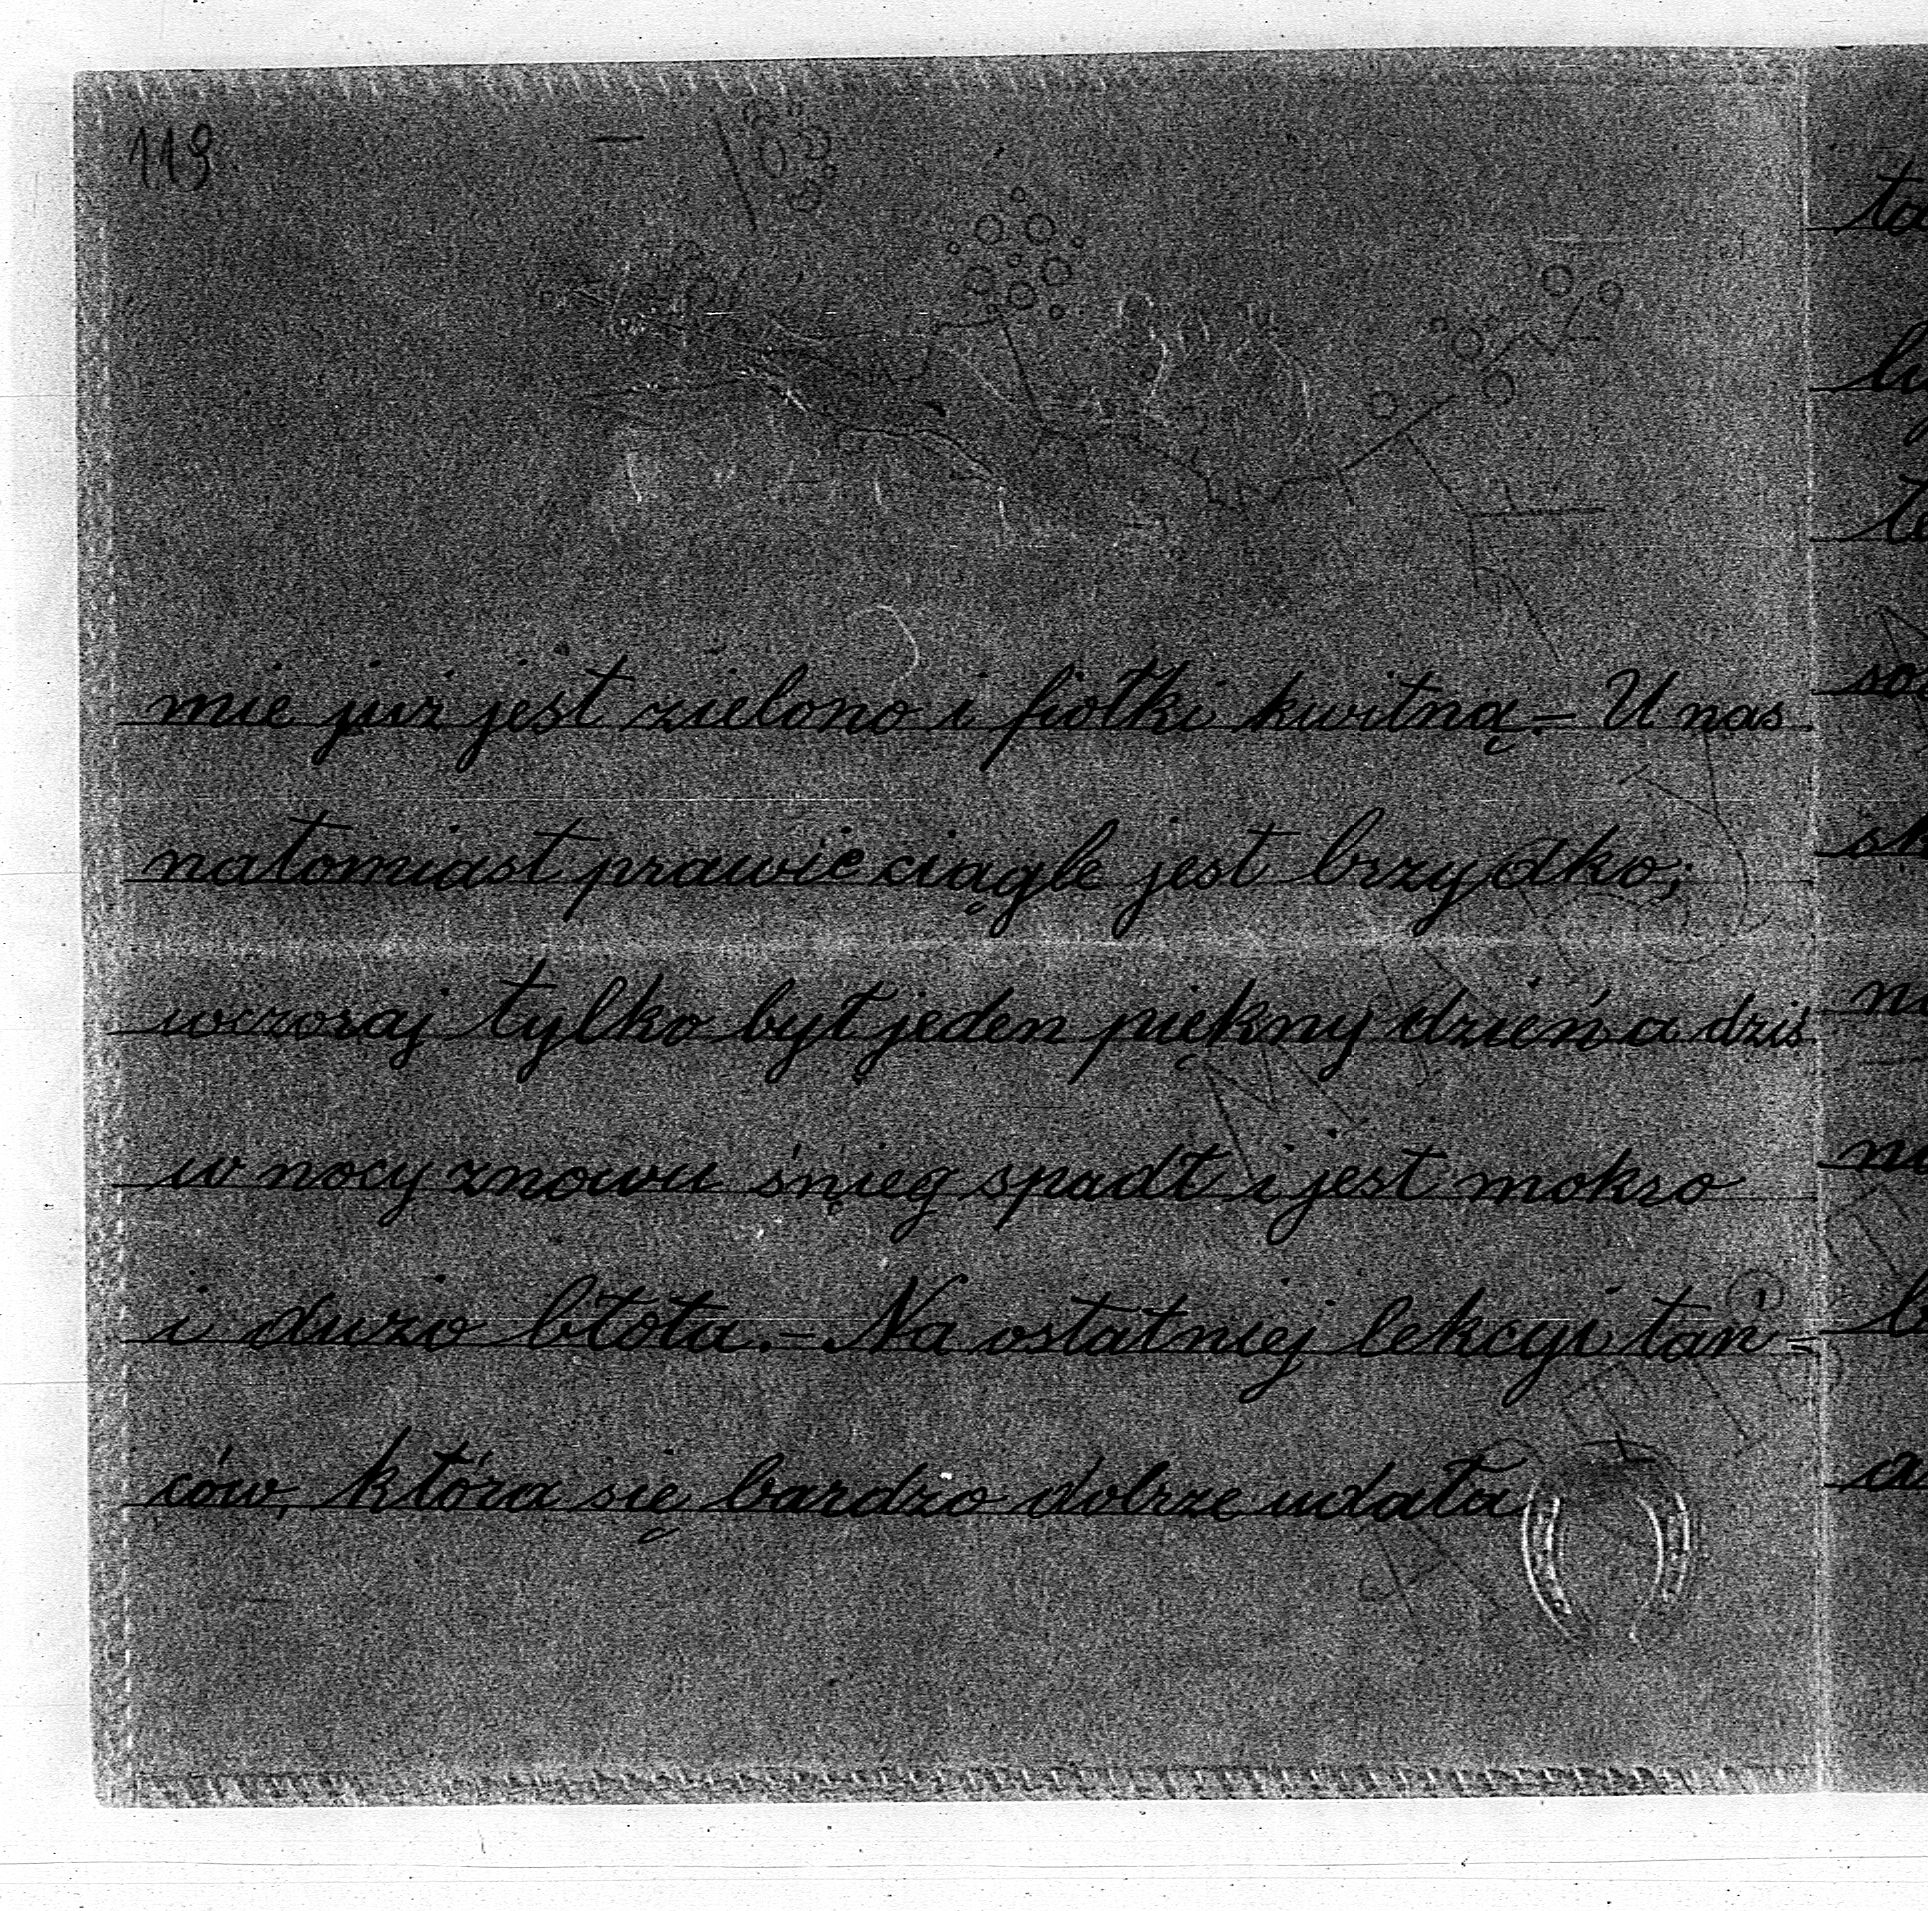 119.
mie już jest zielono i fiołki kwitną. – U nas
natomiast prawie ciągle jest brzydko;
wczoraj tylko był jeden piękny dzień a dziś
w nocy znowu śnieg spadł i jest mokro
i dużo błota. – Na ostatniej lekcyi tań=
ców, która się bardzo dobrze udała